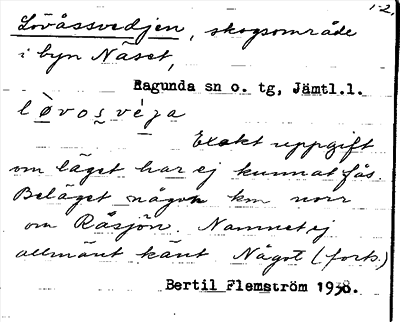 1-2.
Lövåssvedjen, skogsområde
i byn Näset,
Ragunda sn o. tg, Jämtl.l.
l ò̱v o s̱ v é ȷa
Exakt uppgift
om läget har ej kunnat fås.
Beläget någon km norr
om Råsjön. Namnet ej
allmänt känt Något (forts.)
Bertil Flemström 1938.